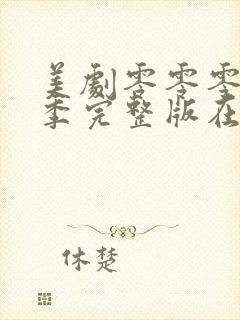 美劇零零零
季完整版在
休楚